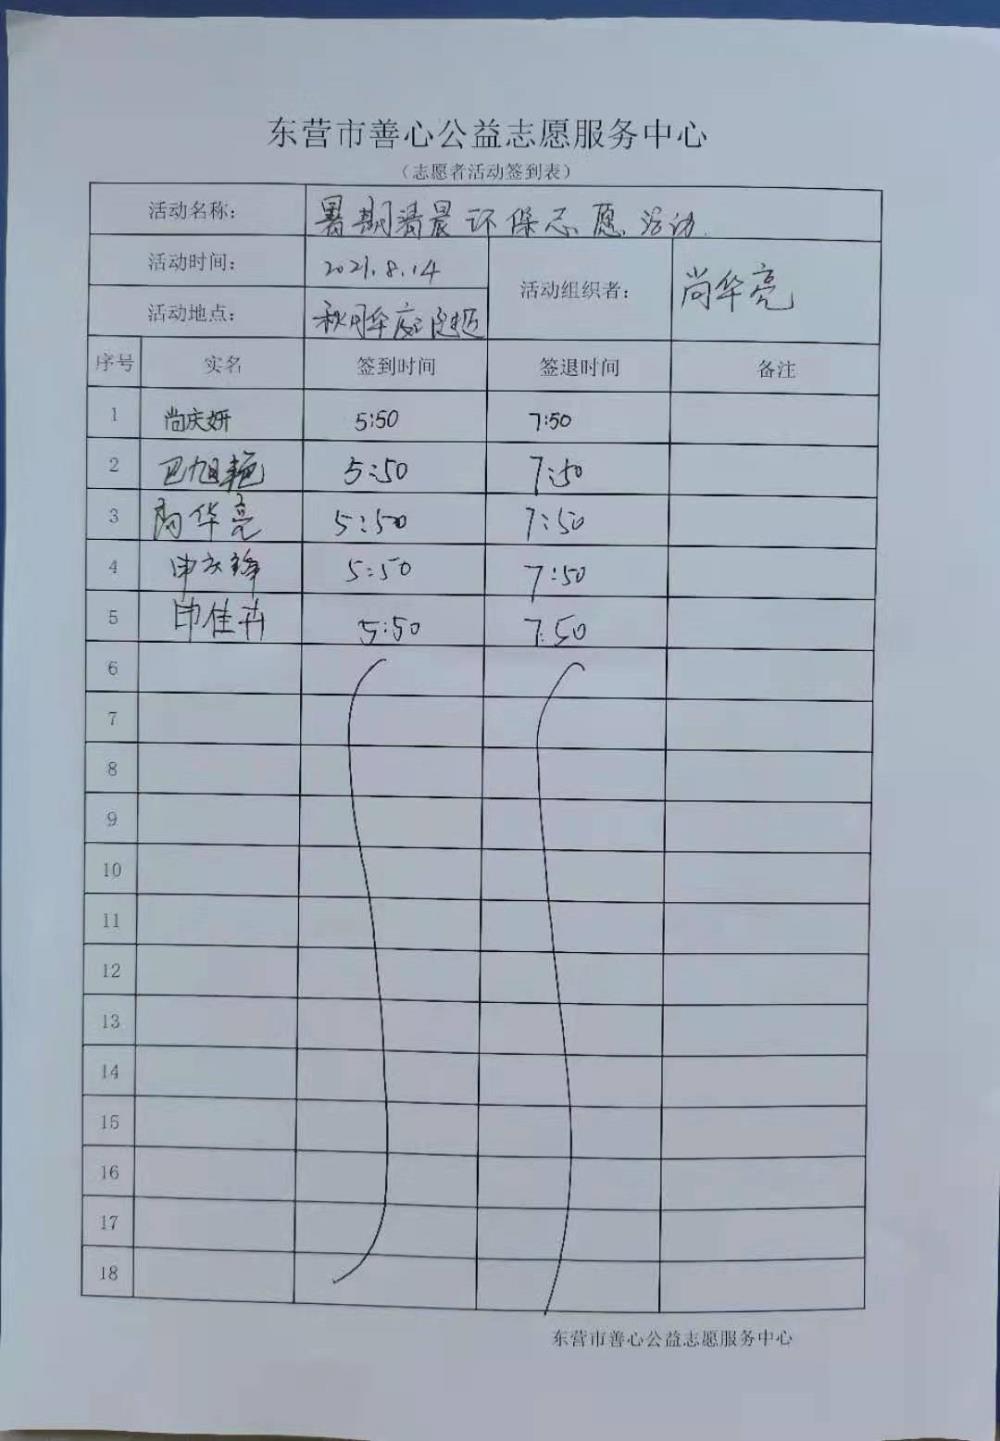 东营市善心公益志愿服务中心
（志愿者活动签到表）
活动名称： 暑期清晨环保志愿活动
活动时间： 2021.8.14 活动组织者： 尚华亮
活动地点： 秋月华庭
序号 实名 签到时间 签退时间 备注
1 尚庆妍 5:50 7:50
2 巴旭艳 5:50 7:50
3 尚华亮 5:50 7:50
4 申庆锋 5:50 7:50
5 申佳卉 5:50 7:50
6
7
8
9
10
11
12
13
14
15
16
17
18
东营市善心公益志愿服务中心